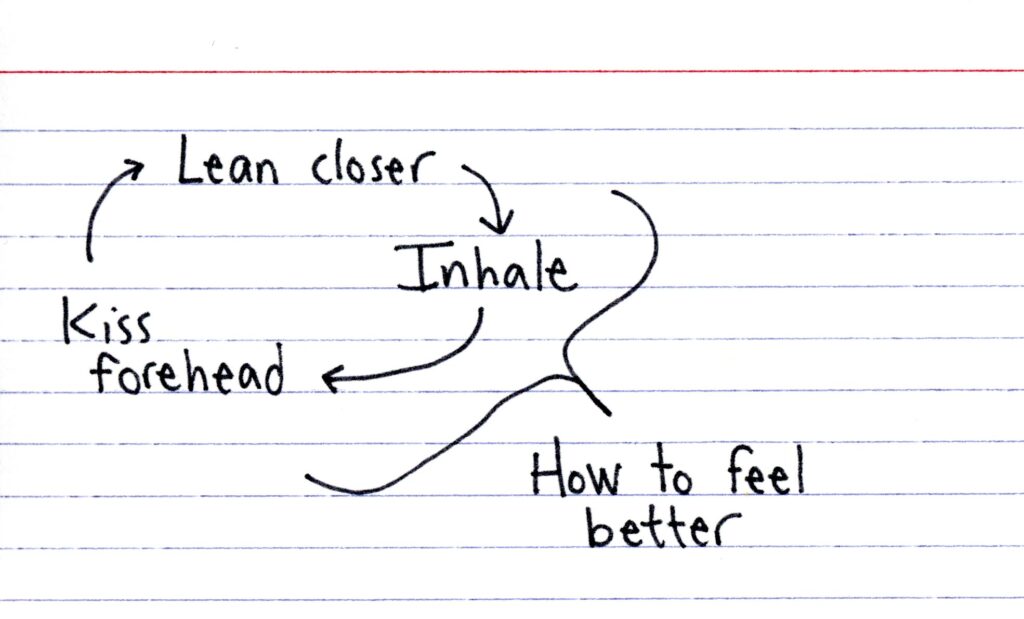 Lean closer
Inhale
Kiss
forehead
How to feel
better